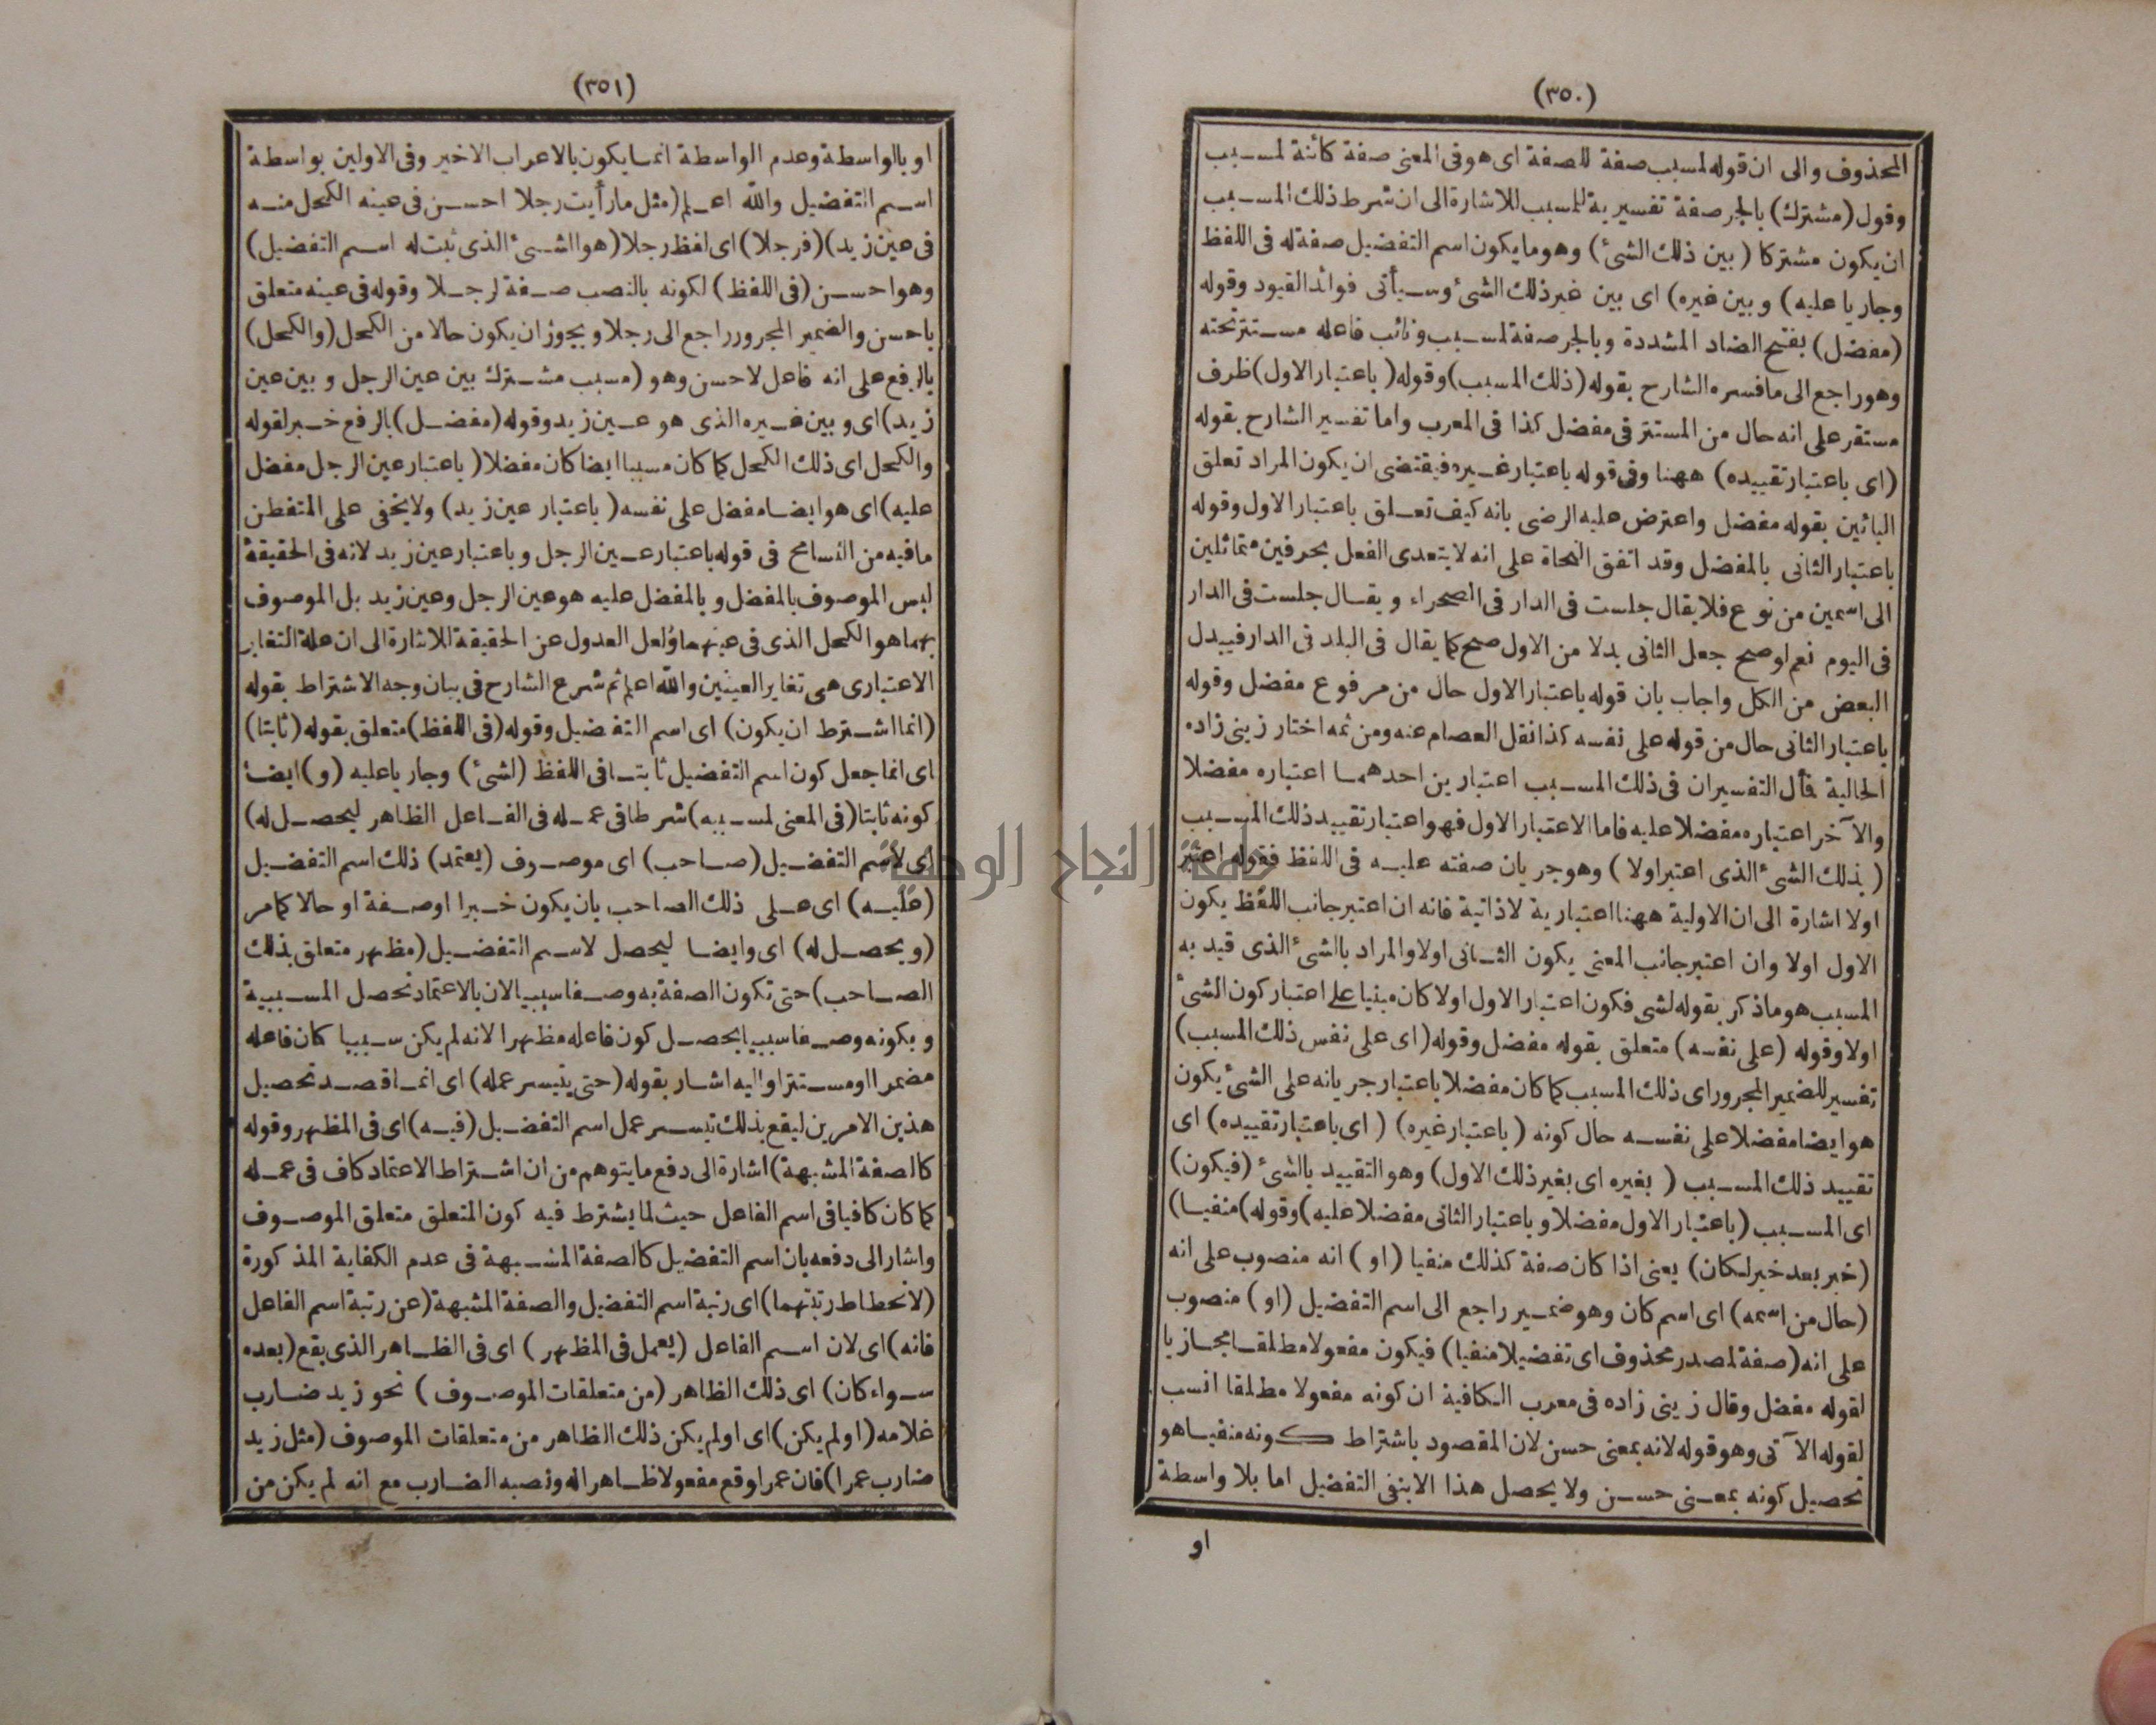 (٣٥٠)
المحذوف والى ان قوله لمسبب صفة للصفة اى هو فى المعنى صفة كائنة لمسبب
وقول (مشترك) بالجر صفة تفسيرية للمسبب للاشارة الى ان شرط ذلك المسبب
ان يكون مشتركا (بين ذلك الشئ) وهو ما يكون اسم التفضيل صفة له فى اللفظ
وجاريا عليه) وبين غيره) اى بين غير ذلك الشئ وسيأتى فوائد القيود وقوله
(مفضل) بفتح الضاد المشددة وبالجر صفة لمسبب ونائب فاعله مستتر تحته
وهو راجع الى ما فسره الشارح بقوله (ذلك المسبب) وقوله (باعتبار الاول) ظرف
مستقر على انه حال من المستتر فى مفضل كذا فى المعرب واما تفسير الشارح بقوله
(اى باعتبار تقييده) ههنا وفى قوله باعتبار غيره فيقتضى ان يكون المراد تعلق
البائين بقوله مفضل واعترض عليه الرضى بانه كيف تعلق باعتبار الاول وقوله
باعتبار الثانى بالمفضل وقد اتفق النحاة على انه لا يتعدى الفعل بحرفين متماثلين
الى اسمين من نوع فلا يقال جلست فى الدار فى الصحراء ويقال جلست فى الدار
فى اليوم نعم لو صح جعل الثانى بدلا من الاول صح كما يقال فى البلد فى الدار فيبدل
البعض من الكل واجاب بان قوله باعتبار الاول حال من مرفوع مفضل وقوله
باعتبار الثانى حال من قوله على نفسه كذا نقل العصام عنه ومن ثمه اختار زينى زاده
الحالية فأل التفسيران فى ذلك المسبب اعتبارين احدهما اعتباره مفضلا
والآخر اعتباره مفضلا عليه فاما الاعتبار الاول فهو اعتبار تقييد ذلك المسبب
(بذلك الشئ الذى اعتبر اولا) وهو جريان صفته عليه فى اللفظ فقوله اعتبر
اولا اشارة الى ان الاولية ههنا اعتبارية لا ذاتية فانه ان اعتبر جانب اللفظ يكون
الاول اولا وان اعتبر جانب المعنى يكون الثانى اولا والمراد بالشئ الذى قيد به
المسبب هو ما ذكر بقوله لشئ فكون اعتبار الاول اولا كان مبنيا على اعتبار كون الشئ
اولا وقوله (على نفسه) متعلق بقوله مفضل وقوله (اى على نفس ذلك المسبب)
تفسير للضمير المجرور اى ذلك المسبب كما كان مفضلا باعتبار جريانه على الشئ يكون
هو ايضا مفضلا على نفسه حال كونه (باعتبار غيره) (اى باعتبار تقييده) اى
تقييد ذلك المسبب (بغيره اى بغير ذلك الاول) وهو التقييد بالشئ (فيكون)
اى المسبب (باعتبار الاول مفضلا وباعتبار الثانى مفضلا عليه) وقوله) منفيا)
(خبر بعد خبر لكان) يعنى اذا كان صفة كذلك منفيا (او) انه منصوب على انه
(حال من اسمه) اى اسم كان وهو ضمير راجع الى اسم التفضيل (او) منصوب
على انه (صفة لمصدر محذوف اى تفضيلا منفيا) فيكون مفعولا مطلقا مجازيا
لقوله مفضل وقال زينى زاده فى معرب الكافية ان كونه مفعولا مطلقا انسب
لقوله الآتى وهو قوله لانه بمعنى حسن لان المقصود باشتراط كونه منفيا هو
تحصيل كونه بمعنى حسن ولا يحصل هذا الا بنفى التفضيل اما بلا واسطة
او
(٣٥١)
او بالواسطة وعدم الواسطة انما يكون بالاعراب الاخير وفى الاولين بواسطة
اسم التفضيل والله اعلم (مثل ما رأيت رجلا احسن فى عينه الكحل منه
فى عين زيد) (فرجلا) اى لفظ رجلا (هو الشئ الذى ثبت له اسم التفضيل)
وهو احسن (فى اللفظ) لكونه بالنصب صفة لرجلا وقوله فى عينه متعلق
باحسن والضمير المجرور راجع الى رجلا ويجوز ان يكون حالا من الكحل (والكحل)
بالرفع على انه فاعل لاحسن وهو (مسبب مشترك بين عين الرجل وبين عين
زيد) اى وبين غيره الذى هو عين زيد وقوله (مفضل) بالرفع خبر لقوله
والكحل اى ذلك الكحل كما كان مسببا ايضا كان مفضلا (باعتبار عين الرجل مفضل
عليه) اى هو ايضا مفضل على نفسه (باعتبار عين زيد) ولا يخفى على المتفطن
ما فيه من التسامح فى قوله باعتبار عين الرجل وباعتبار عين زيد لانه فى الحقيقة
ليس الموصوف بالمفضل وبالمفضل عليه هو عين الرجل وعين زيد بل الموصوف
بهما هو الكحل الذى فى عينهما ولعل العدول عن الحقيقة للاشارة الى ان علة التغاير
الاعتبارى هى تغاير العينين والله اعلم ثم شرع الشارح فى بيان وجه الاشتراط بقوله
(انما اشترط ان يكون) اى اسم التفضيل وقوله (فى اللفظ) متعلق بقوله (ثابتا)
اى انما جعل كون اسم التفضيل ثابتا فى اللفظ (لشئ) وجاريا عليه (و) ايضا
كونه ثابتا (فى المعنى لمسببه) شرطا فى عمله فى الفاعل الظاهر ليحصل له)
اى لاسم التفضيل (صاحب) اى موصوف (يعتمد) ذلك اسم التفضيل
(عليه) اى على ذلك الصاحب بان يكون خبرا او صفة او حالا كما مر
(ويحصل له) اى وايضا ليحصل لاسم التفضيل (مظهر متعلق بذلك
الصاحب) حتى تكون الصفة به وصفا سببيا لان بالاعتماد تحصل المسببية
وبكونه وصفا سببيا يحصل كون فاعله مظهرا لانه لم يكن سببيا كان فاعله
مضمرا او مستترا واليه اشار بقوله (حتى يتيسر عمله) اى انما قصد تحصيل
هذين الامرين ليقع بذلك تيسر عمل اسم التفضيل (فيه) اى فى المظهر وقوله
كالصفة المشبهة) اشارة الى دفع ما يتوهم من ان اشتراط الاعتماد كاف فى عمله
كما كان كافيا فى اسم الفاعل حيث لما يشترط فيه كون المتعلق متعلق الموصوف
واشار الى دفعه بان اسم التفضيل كالصفة المشبهة فى عدم الكفاية المذكورة
(لانحطاط رتبتهما) اى رتبة اسم التفضيل والصفة المشبهة (عن رتبة اسم الفاعل
فانه) اى لان اسم الفاعل (يعمل فى المظهر) اى فى الظاهر الذى يقع (بعده
سواء كان) اى ذلك الظاهر (من متعلقات الموصوف) نحو زيد ضارب
غلامه (او لم يكن) اى او لم يكن ذلك الظاهر من متعلقات الموصوف (مثل زيد
ضارب عمرا) فان عمرا وقع مفعولا ظاهرا له ونصبه الضارب مع انه لم يكن من